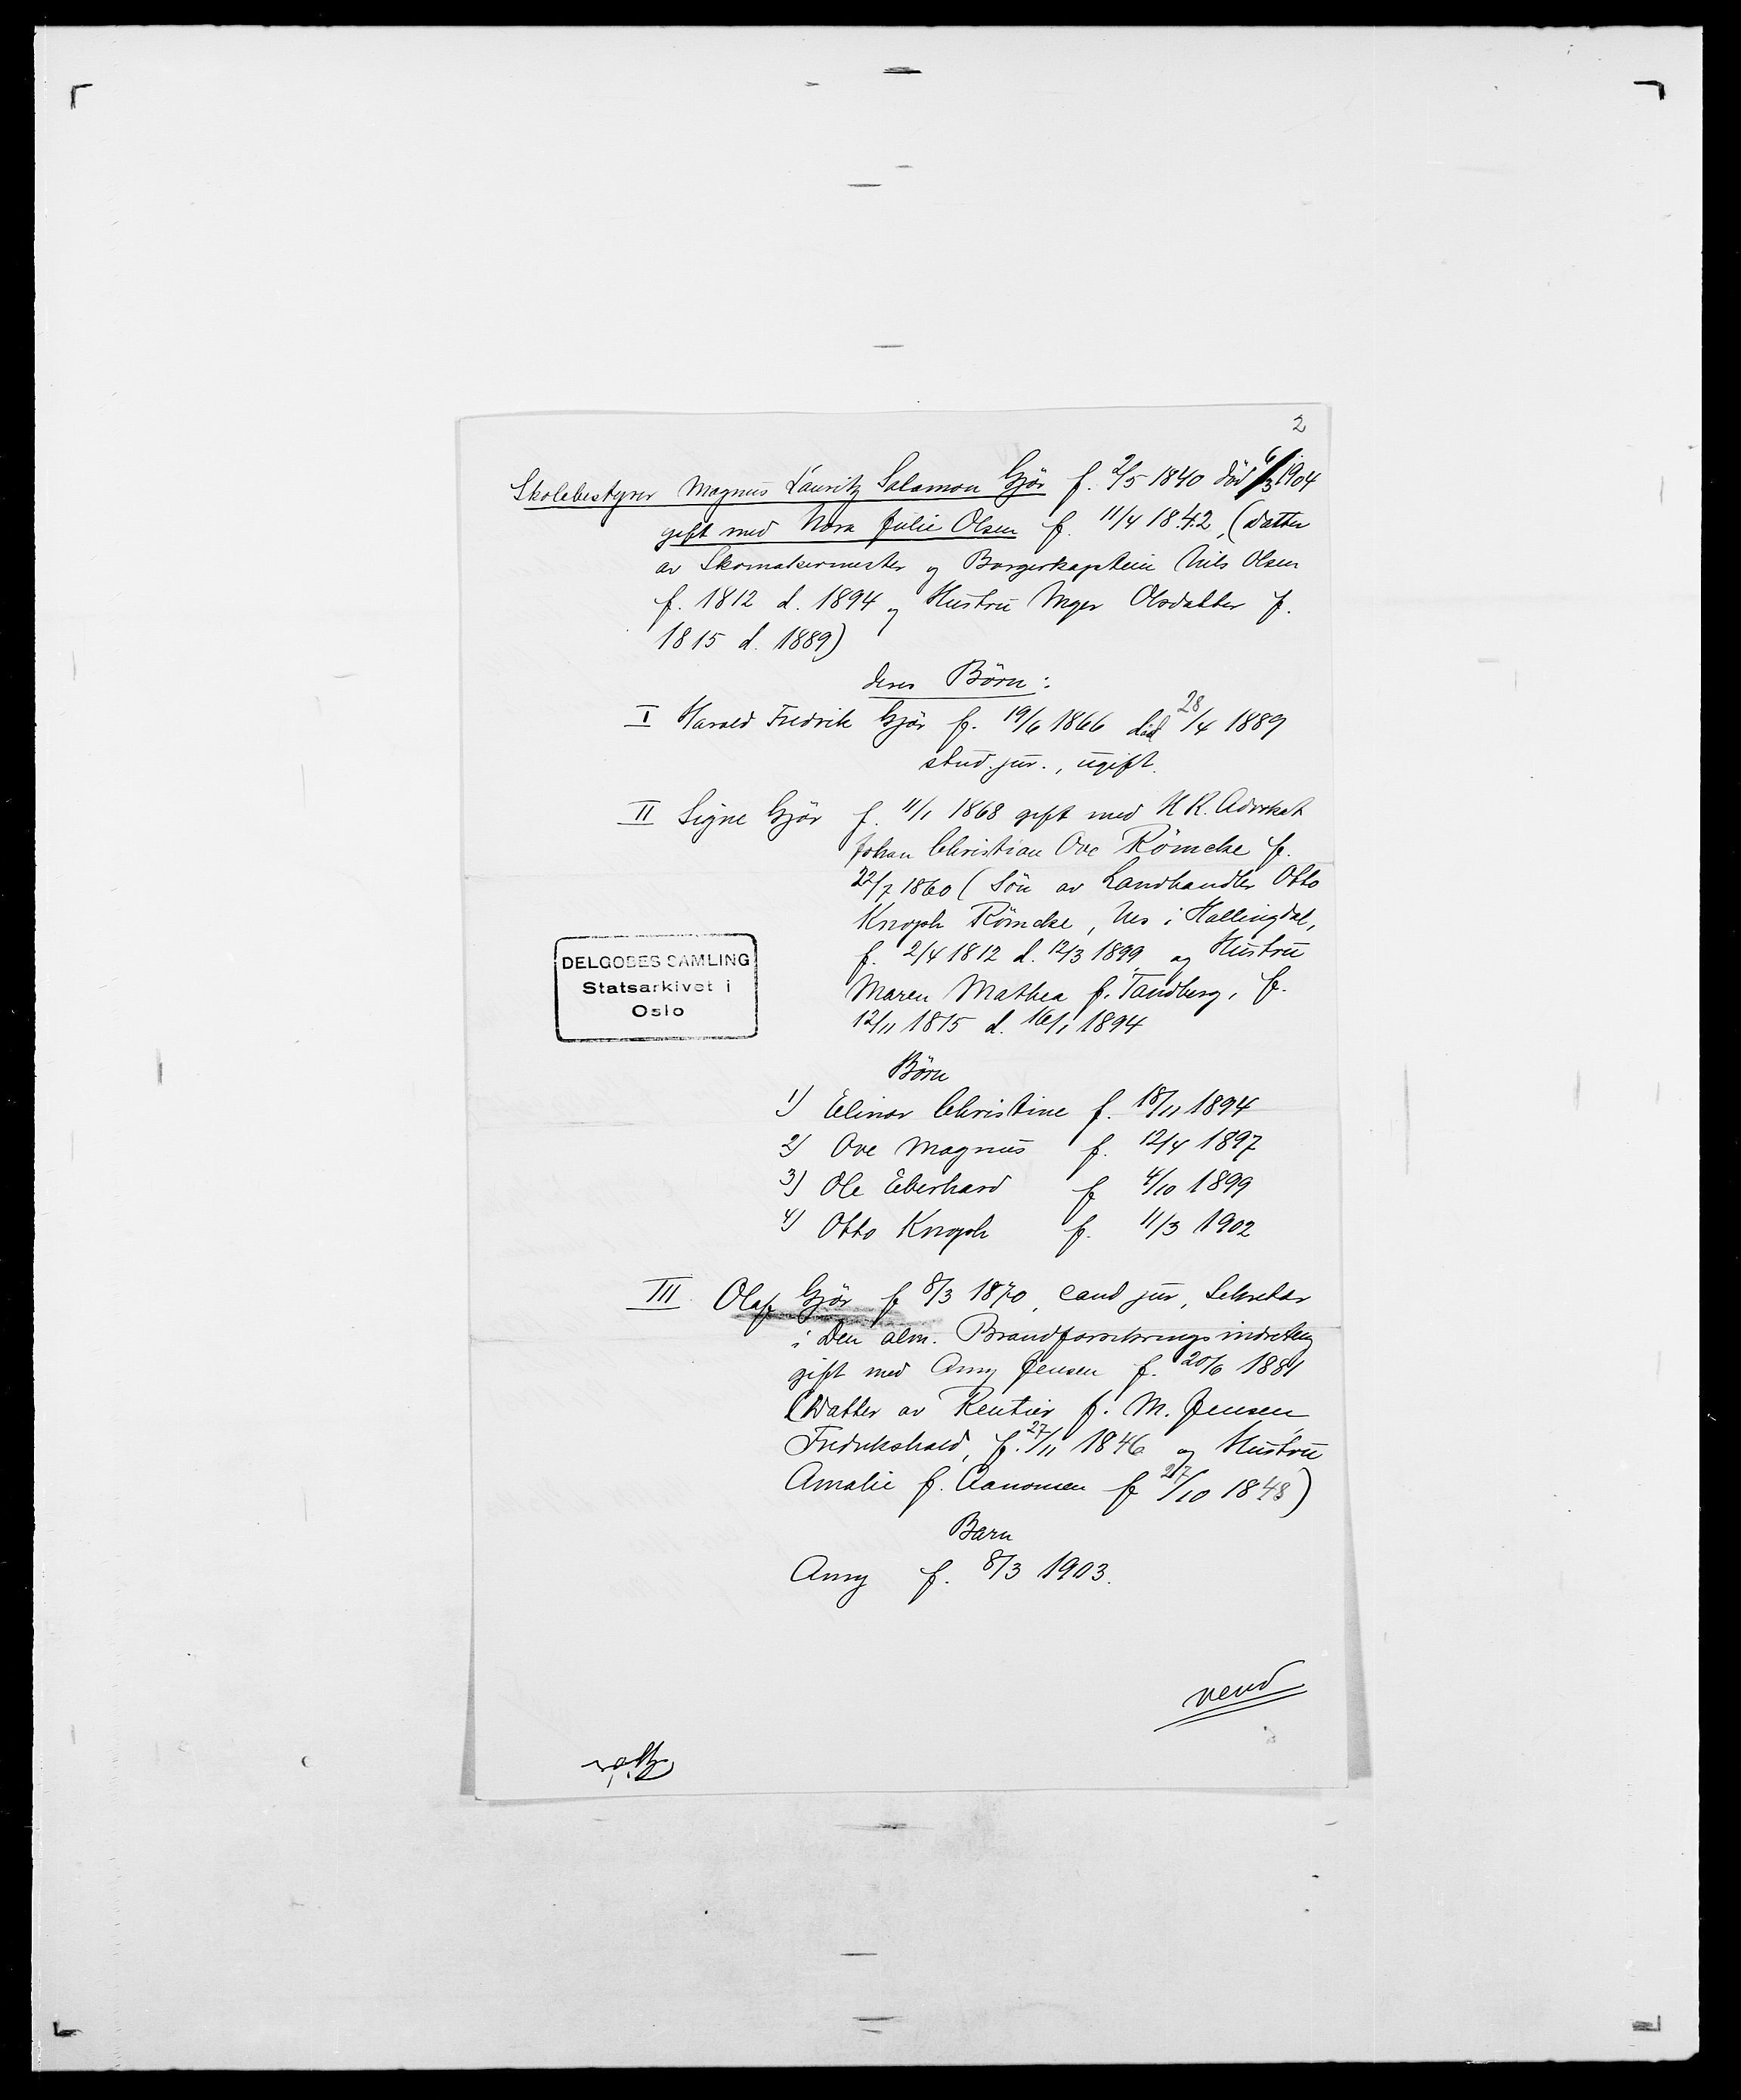 2
Skolebestyrer Magnus Lauritz Salamon Gjör f. 2/5 1840 död 6/3 1904
gift med Nora Julie Olsen f. 11/4 1842, (datter
av Skomakermester og Borgerkaptein Nils Olsen
f. 1812 d. 1894 og Hustru Inger Olsdatter f.
1815 d. 1889)
deres Börn:
I Harald Fredrik Gjör f. 19/6 1866 död 28/4 1889
stud. jur., ugift.
II Signe Gjör f. 11/1 1868 gift med H.R. Advokat
Johan Christian Ove Römcke f.
22/7 1860 (Sön av Landhandler Otto
Knoph Römcke, Nes i Hallingdal,
f. 2/4 1812 d. 12/3 1899 og Hustru
Maren Mathea f. Tandberg, f.
12/11 1815 d. 16/1 1894
DELGOBES SAMLING
Statsarkivet i
Oslo
Börn
1) Elinor Christine f. 18/11 1894
2) Ove Magnus f. 12/4 1897
3) Ole Eberhard f 4/10 1899
4) Otto Knoph f. 11/3 1902
III Olaf Gjör f 8/3 1870, cand jur, Sekretær
i Den alm. Brandforsikringsindretning
gift med Amy Jensen f. 20/6 1881
(Datter av Rentier J. M. Jensen,
Fredrikshald, f. 27/11 1846 og Hustru
Amalie f. Aanonsen f 27/10 1848)
Barn
Amy f. 8/3 1903.
vend